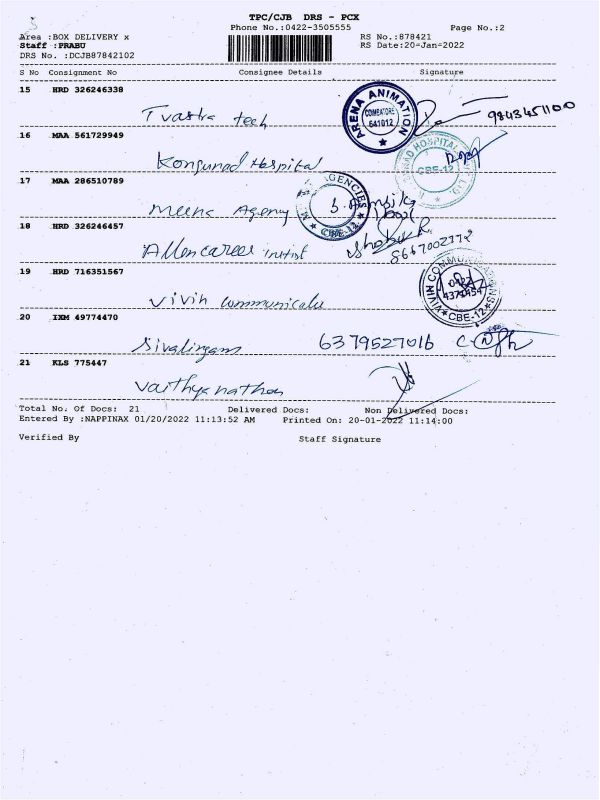 TPC/CJB DRS - PCX
Phone No.:0422-3505555 Page No.:2
Area :BOX DELIVERY x RS No.:878421
Staff :PRABU RS Date:20-Jan-2022
DRS No. :DCJB87842102
S No Consignment No Consignee Details Signature
15 HRD 326246338
Tvastra tech ARENA ANIMATION COIMBATORE 641012 9843451100
16 MAA 561729949
Kongunad Hospital HOSPITAL CBE-12
17 MAA 286510789
Meena Agency AGENCIES CBE-12
18 HRD 326246457
Allen career instist 8667002372
19 HRD 716351567
Vivin communicalu VIVIN COMMUNICATIONS 0422 4371454 CBE-12
20 IXM 49774470
Sivalingam 6379527016
21 KLS 775447
Vaithyanathan
Total No. Of Docs: 21 Delivered Docs: Non Delivered Docs:
Entered By :NAPPINAX 01/20/2022 11:13:52 AM Printed On: 20-01-2022 11:14:00
Verified By Staff Signature